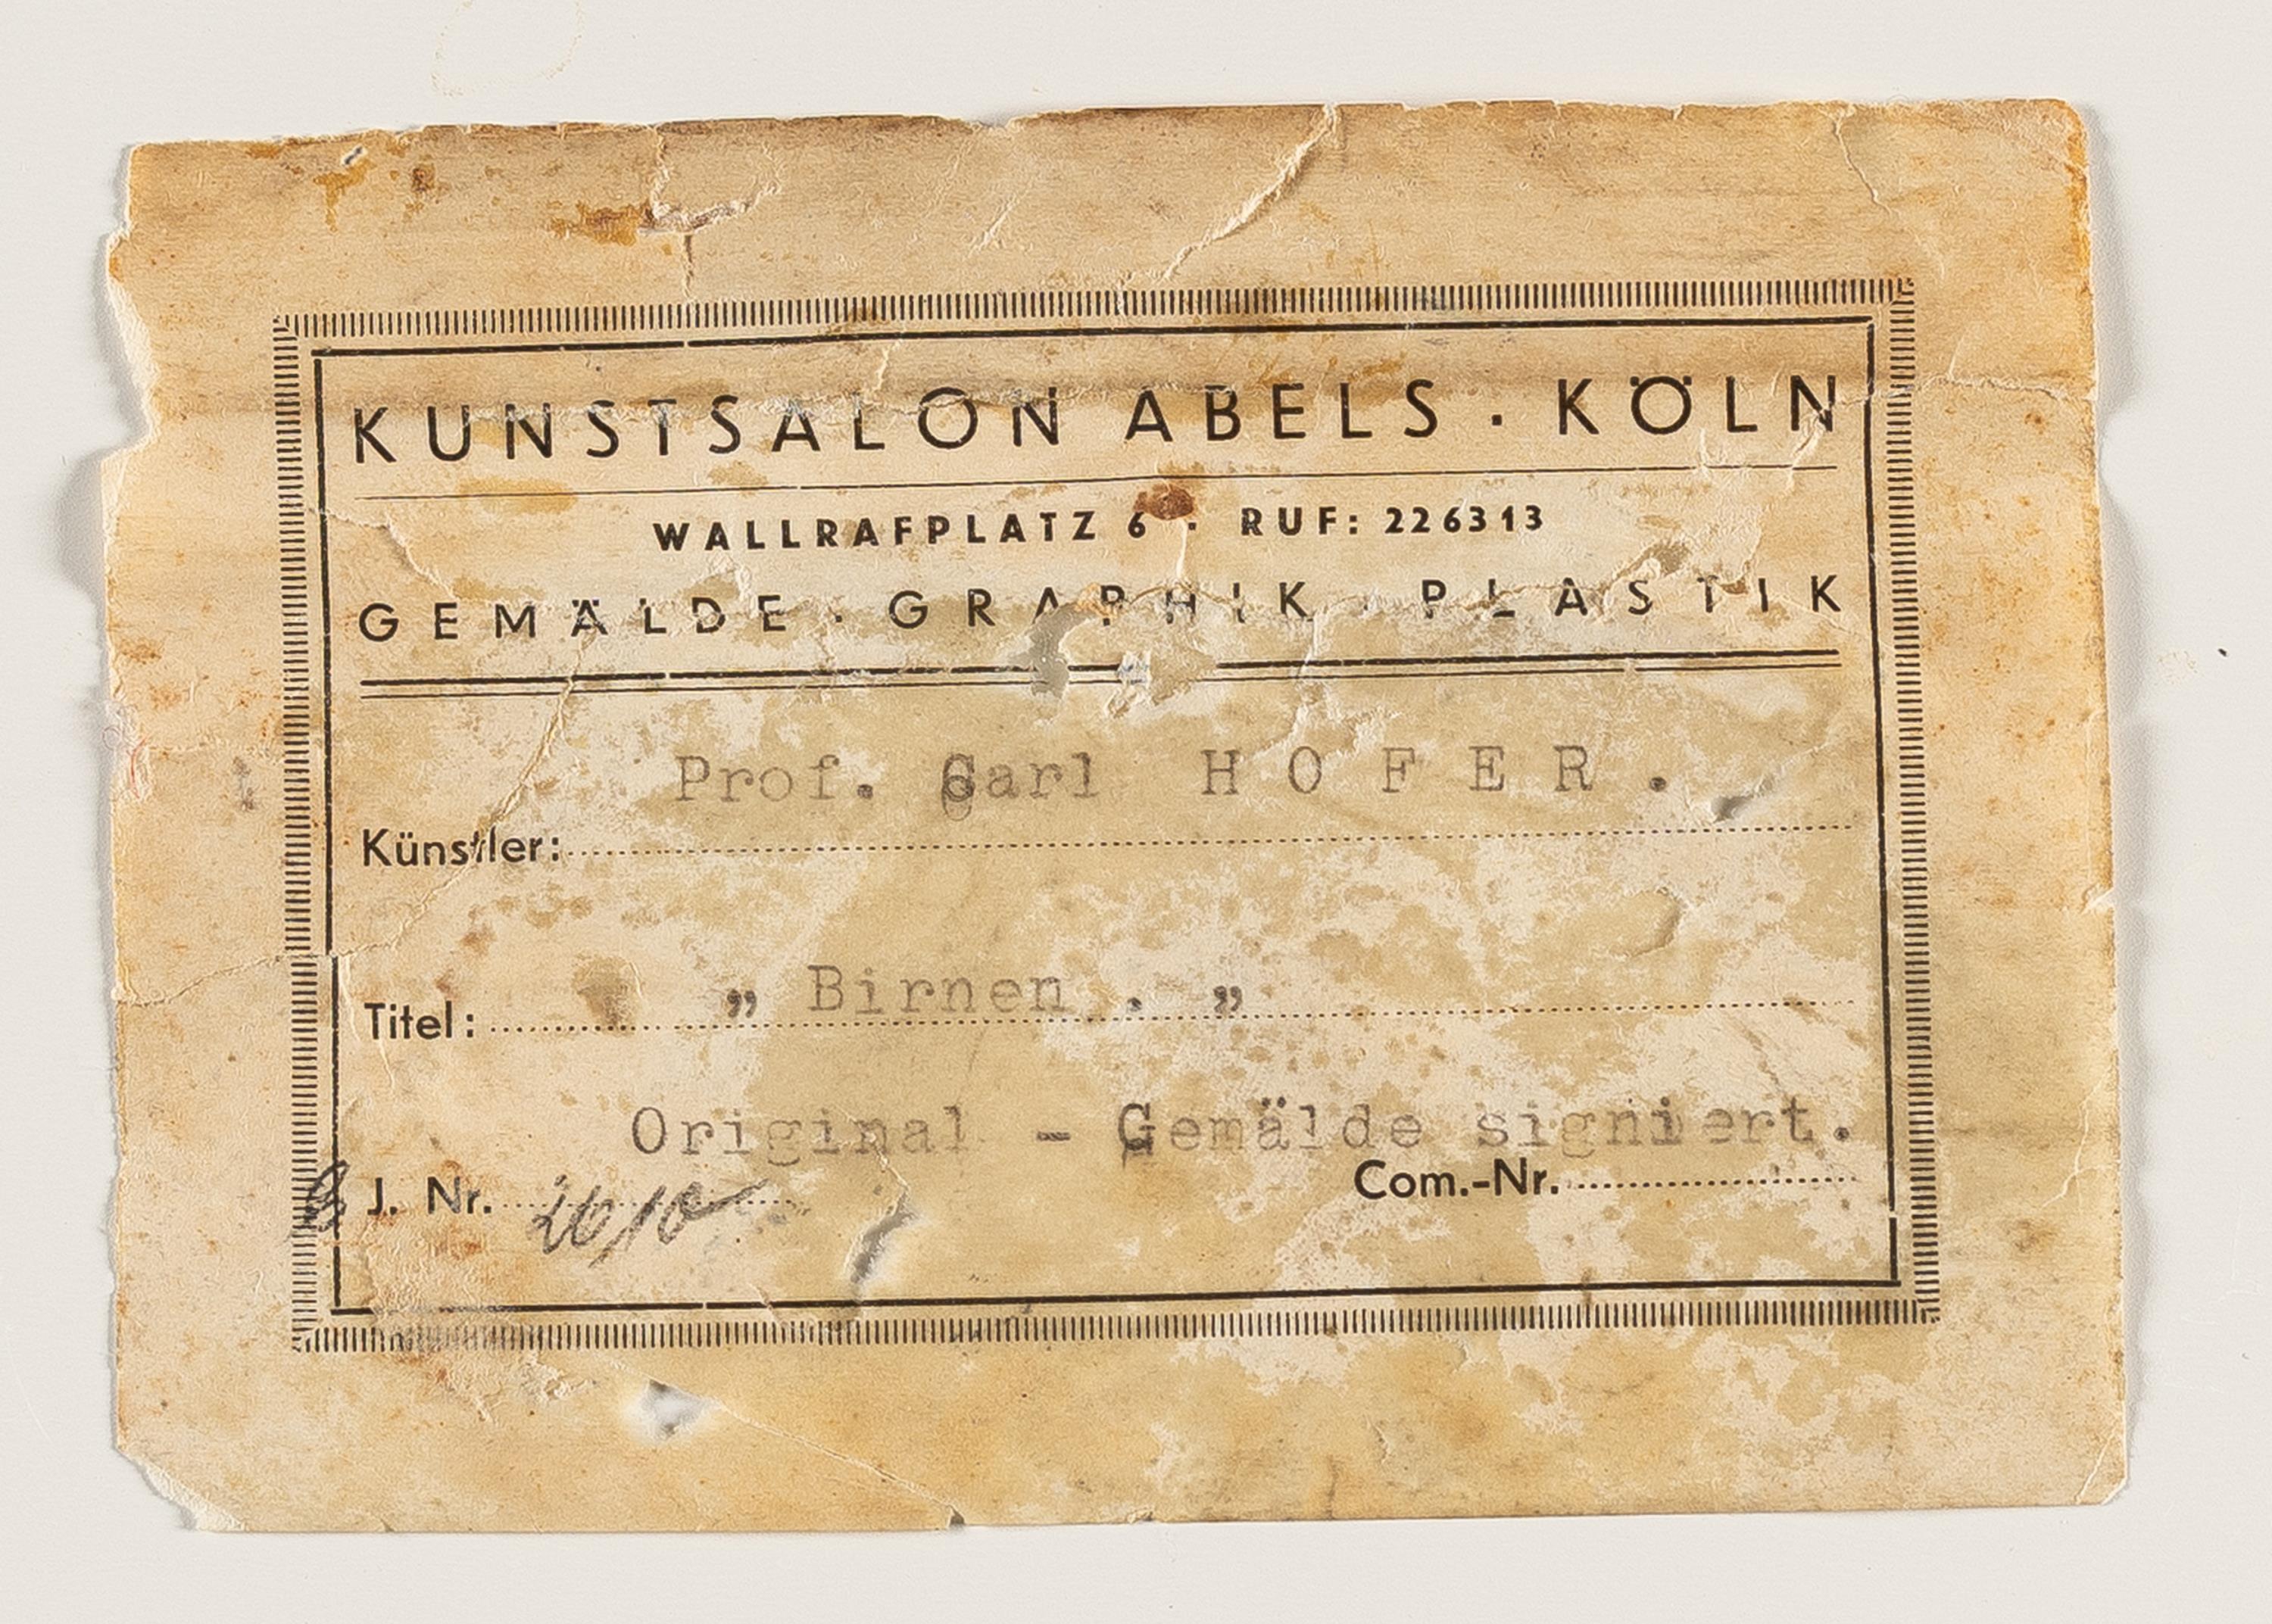 KUNSTSALON ABELS · KÖLN
WALLRAFPLATZ 6 · RUF: 226313
GEMÄLDE · GRAPHIK · PLASTIK
Prof. Carl HOFER.
Künstler:
Titel: „ Birnen . „
Original - Gemälde signiert.
J. Nr. Com.-Nr.